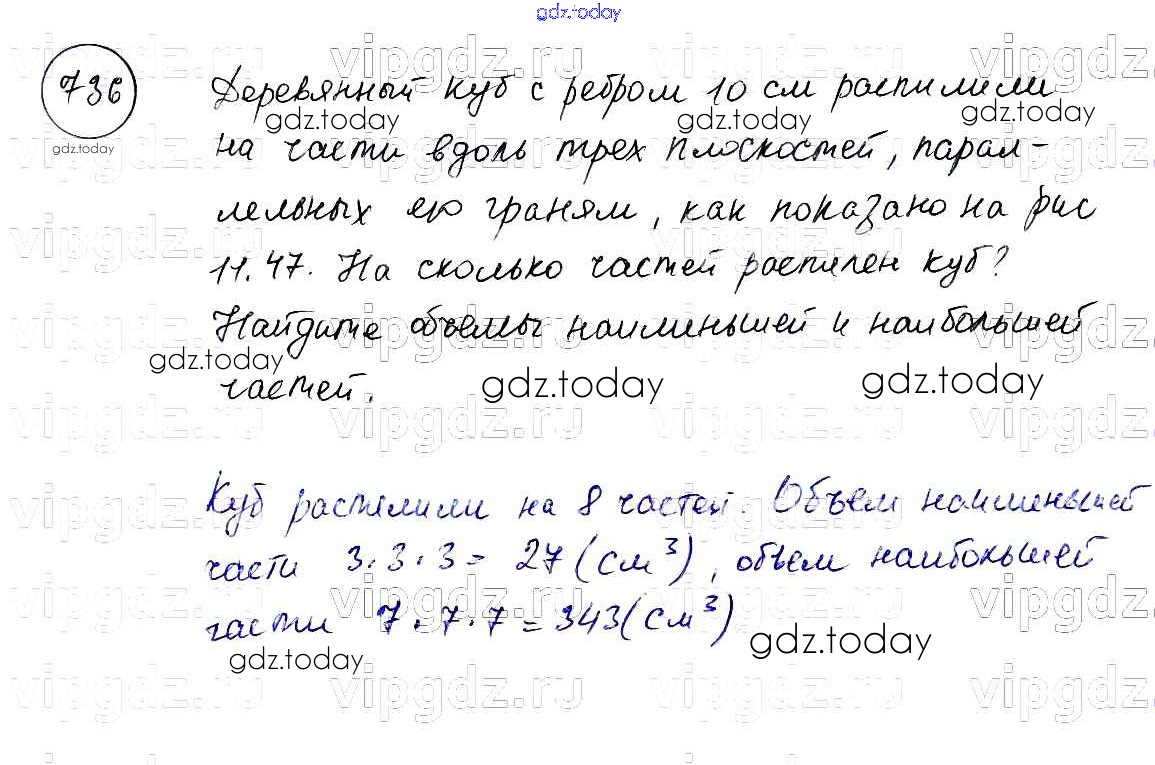 gdz.today
736
Деревянный куб с ребром 10 см распилили
на части вдоль трех плоскостей, парал-
лельных его граням, как показано на рис
11.47. На сколько частей распилен куб?
Найдите объемы наименьшей и наибольшей
частей.
Куб распилили на 8 частей. Объем наименьшей
части 3·3·3= 27 (см³), объем наибольшей
части 7·7·7=343(см³)
gdz.today
gdz.today
gdz.today
gdz.today
gdz.today
gdz.today
gdz.today
gdz.today
vipgdz.ru